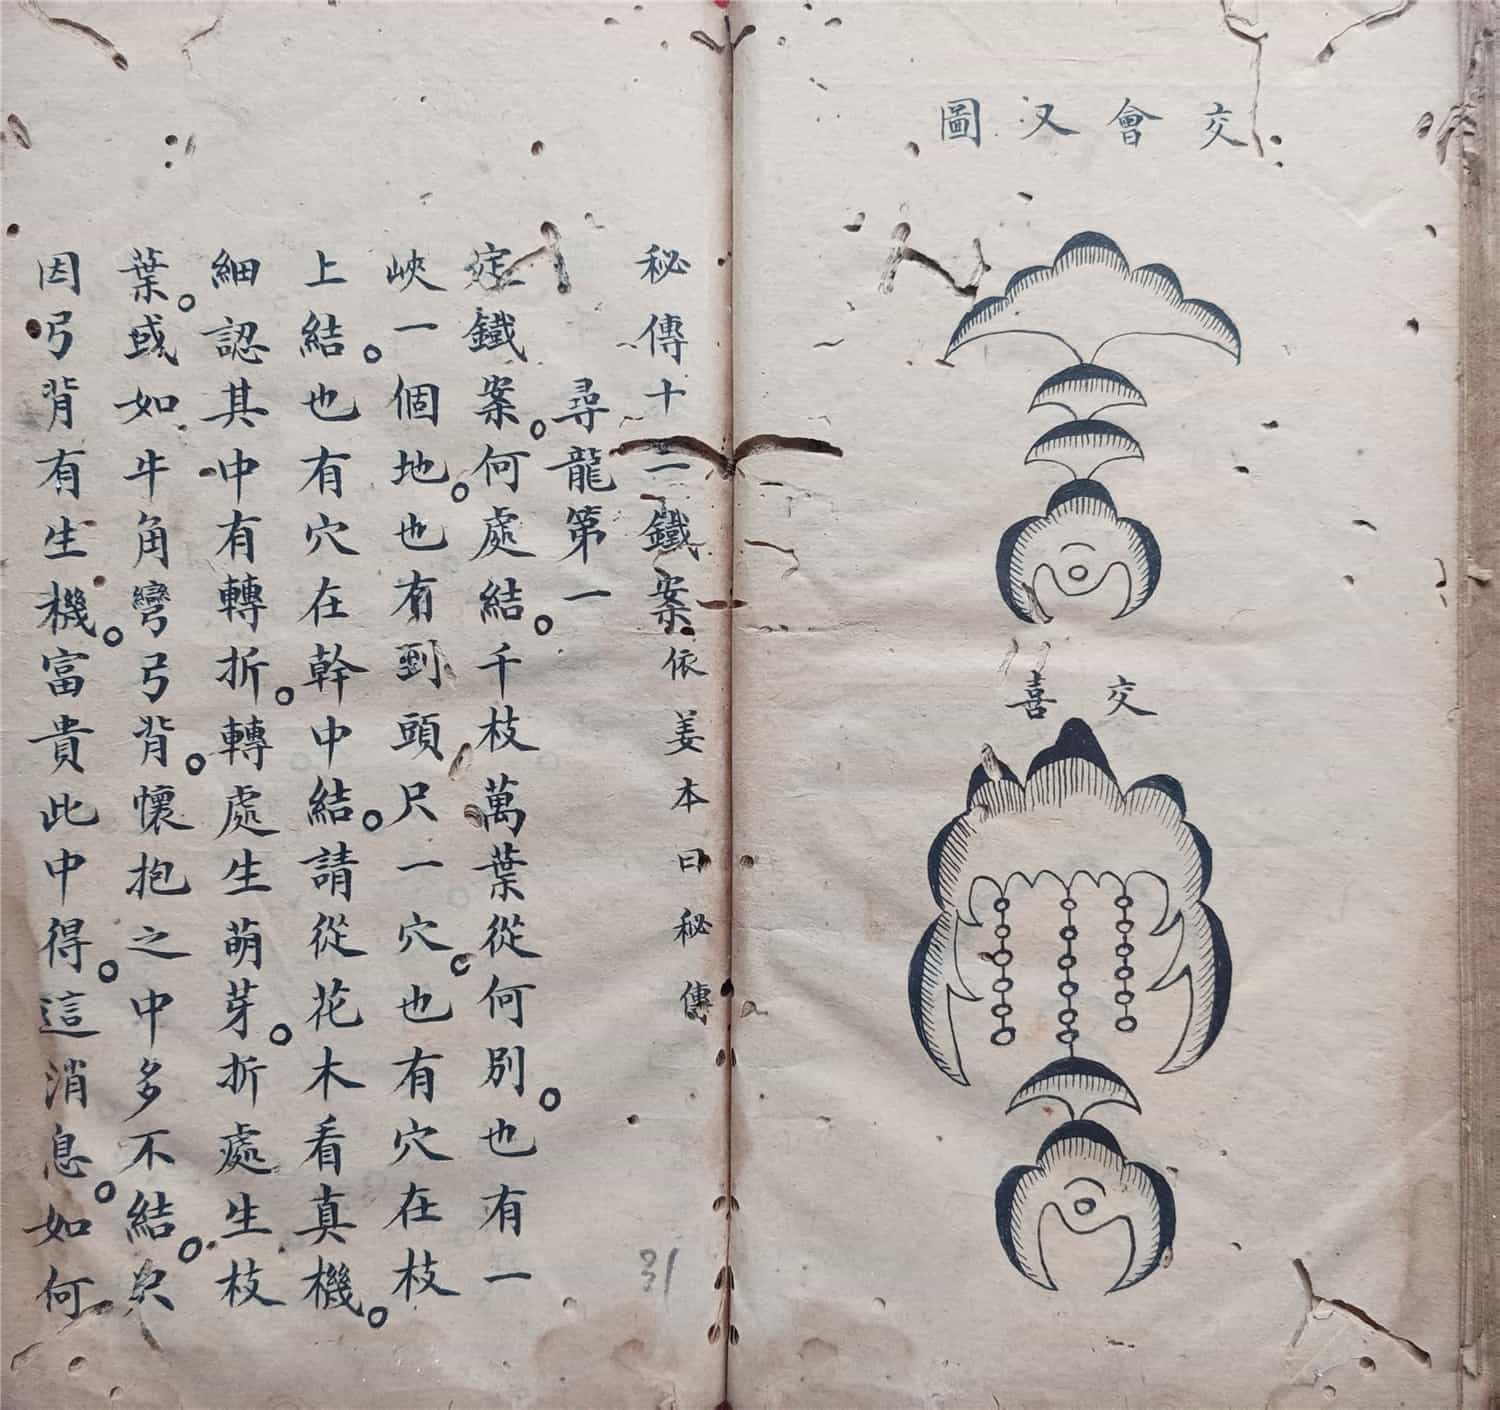 交會又圖
交喜
秘傳十二鐵案依姜本曰秘傳
尋龍第一
定鐵案。何處結。千枝萬葉從何別。也有一
峽一個地。也有到頭只一穴。也有穴在枝
上結。也有穴在幹中結。請從花木看真機。
細認其中有轉折。轉處生萌芽。折處生枝
葉。或如牛角彎弓背。懷抱之中多不結。只
因弓背有生機。富貴此中得。這消息。如何
31